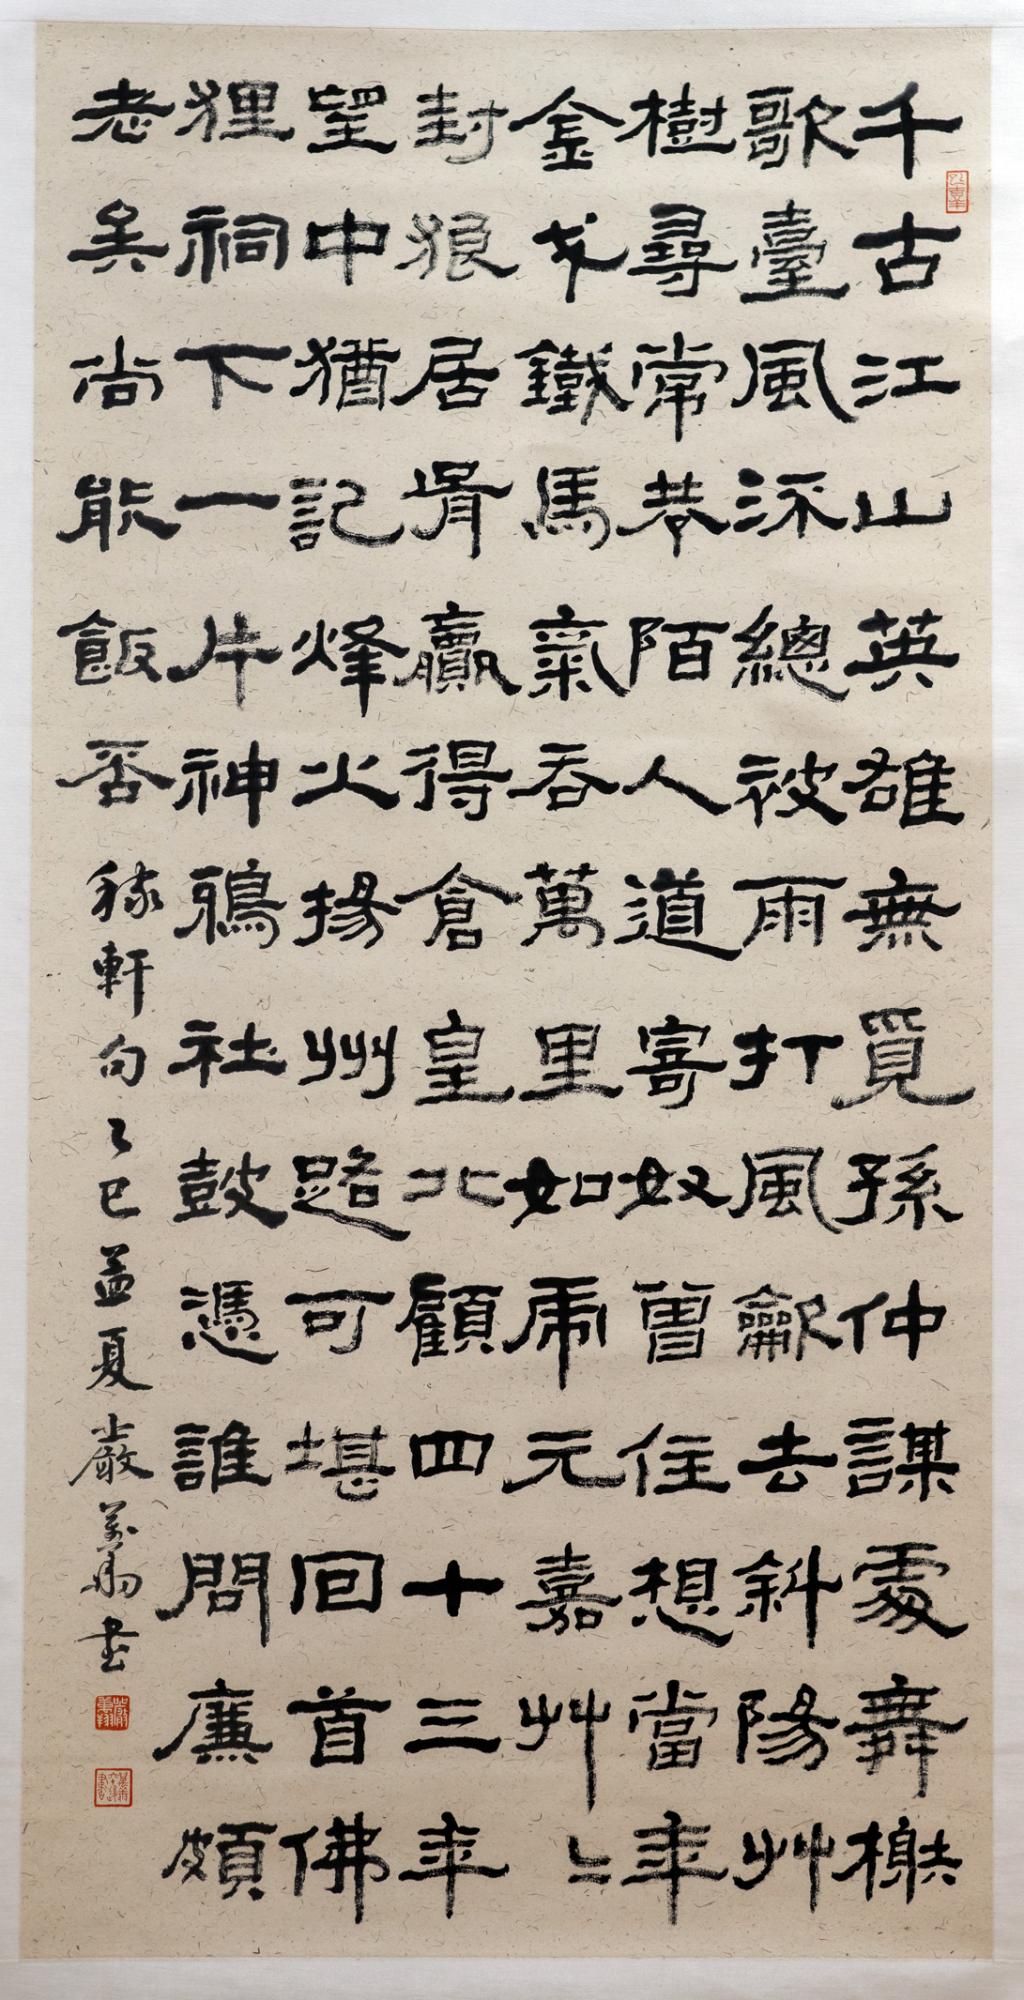 千古江山英雄無覓孫仲謀處舞榭
歌臺風流總被雨打風龡去斜陽艸
樹尋常巷陌人道寄奴曾住想當年
金戈鐵馬氣吞萬里如虎元嘉艸〻
封狼居胥贏得倉皇北顧四十三年
望中猶記烽火揚州路可堪回首佛
狸祠下一片神鴉社鼓憑誰問廉頗
老矣尚能飯否稼軒句乙巳孟夏嚴書